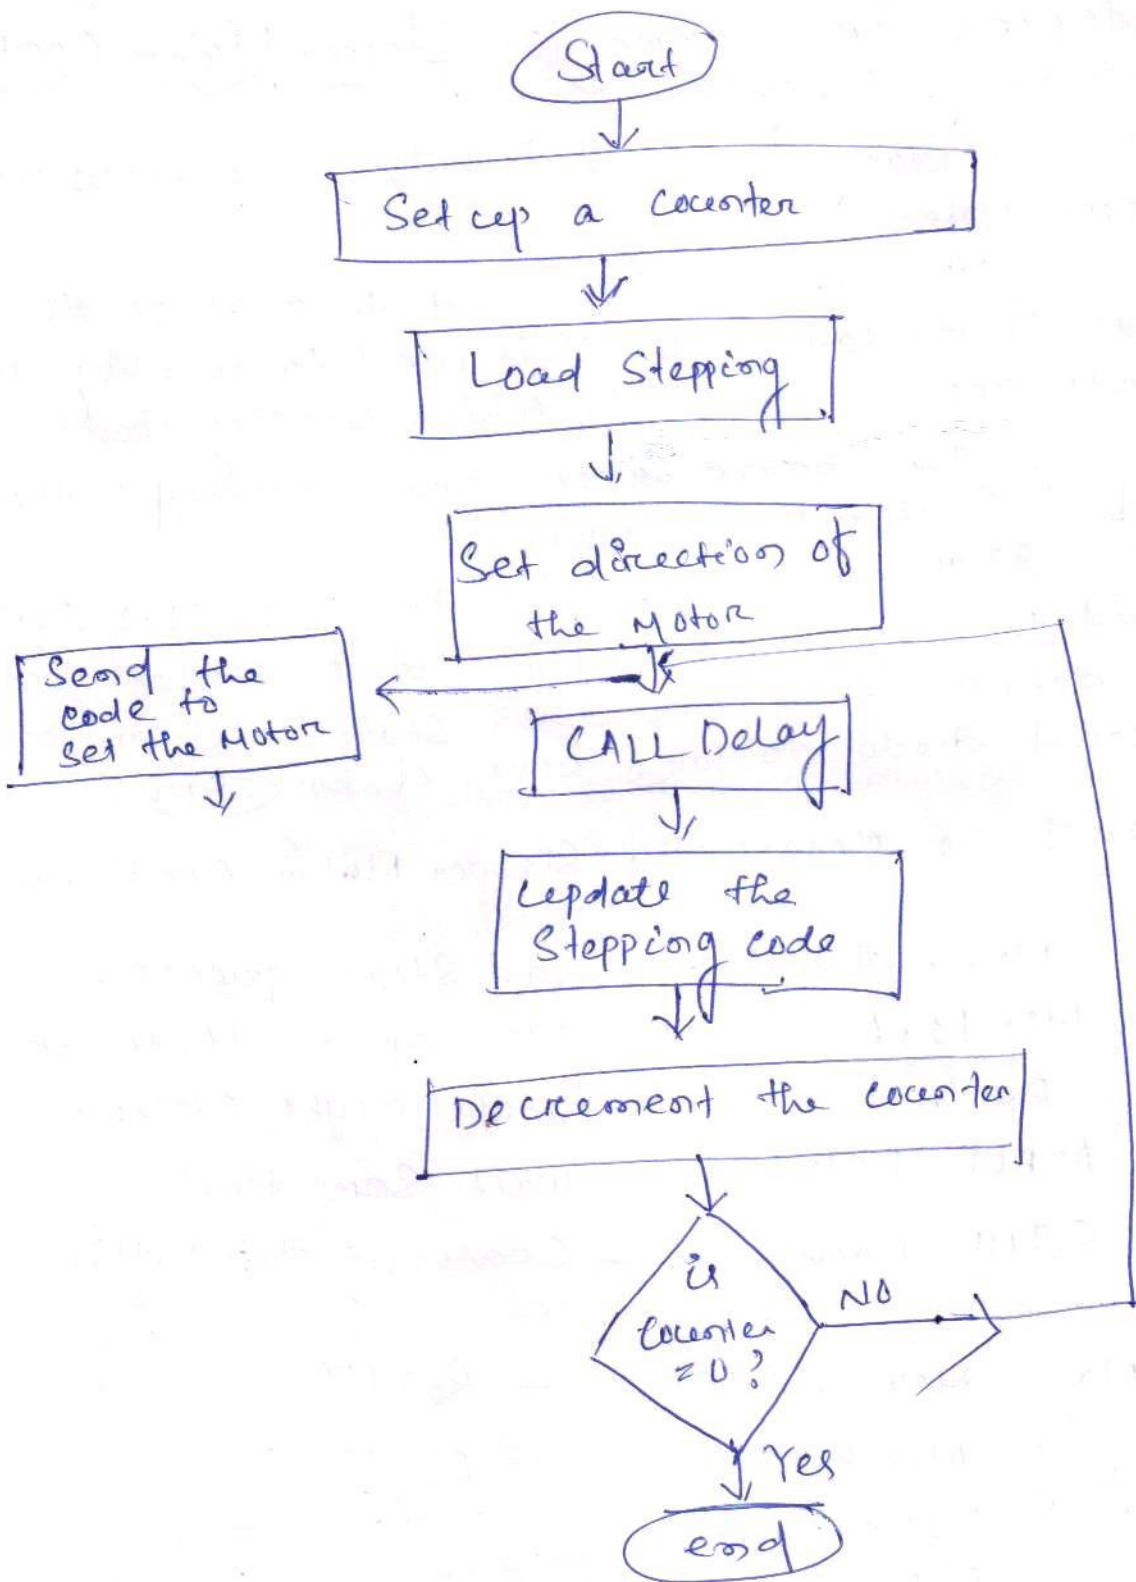 Start
Set up a counter
Load Stepping
Set direction of
the Motor
Send the
code to
Set the Motor
CALL Delay
Update the
Stepping code
Decrement the counter
is
Counter
= 0?
NO
Yes
end